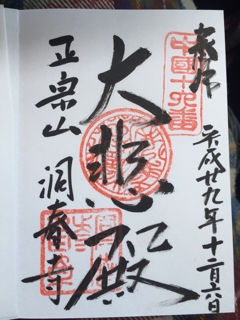 奉拝
中國十六番
平成廿九年十二月六日
大悲殿
正宗山 洞春寺